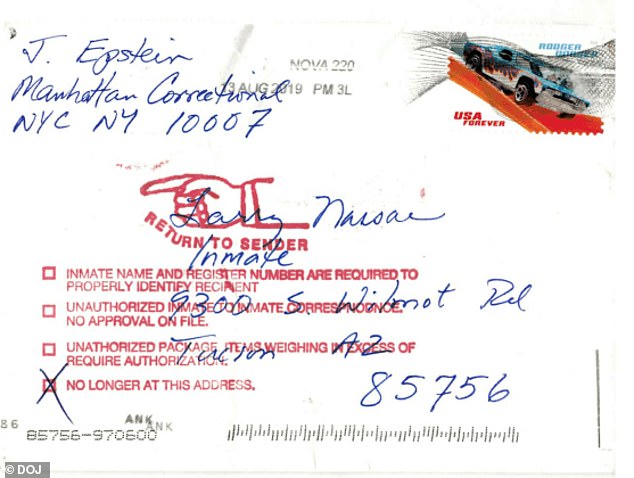 J. Epstein
Manhattan Correctional
NYC NY 10007
NOVA 220
13 AUG 2019 PM 3L
RODGER DODGER
USA
FOREVER
Larry Nassar
Inmate
9300 S. Wilmot Rd
Tucson AZ
85756
RETURN TO SENDER
INMATE NAME AND REGISTER NUMBER ARE REQUIRED TO
PROPERLY IDENTIFY RECIPIENT
UNAUTHORIZED INMATE TO INMATE CORRESPONDENCE.
NO APPROVAL ON FILE.
UNAUTHORIZED PACKAGE, ITEMS WEIGHING IN EXCESS OF
REQUIRE AUTHORIZATION.
X NO LONGER AT THIS ADDRESS.
86
ANK
ANK
85756-970600
© DOJ